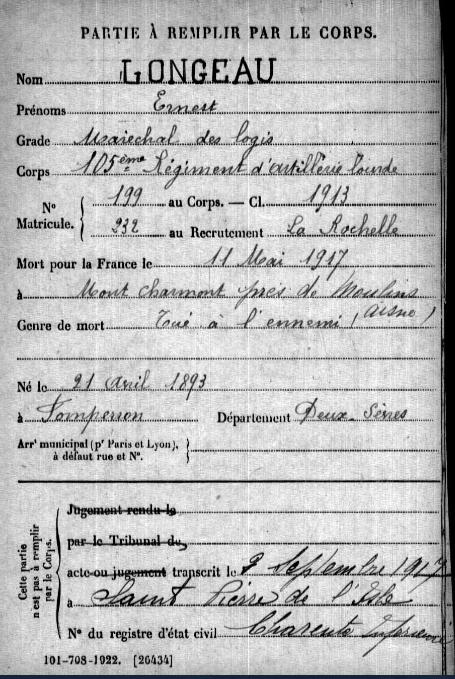 PARTIE À REMPLIR PAR LE CORPS.
Nom LONGEAU
Prénoms Ernest
Grade Maréchal des logis
Corps 105ème Régiment d'artillerie lourde
N° Matricule. { 199 au Corps. — Cl. 1913
232 au Recrutement La Rochelle
Mort pour la France le 11 Mai 1917
à Mont charmont près de Moulins
Genre de mort Tué à l'ennemi (Aisne)
Né le 21 avril 1893
à Département Deux-Sèvres
Arrt municipal (pr Paris et Lyon), à défaut rue et N°. }
Cette partie n'est pas à remplir par le Corps.
Jugement rendu le
par le Tribunal de
acte ou jugement transcrit le 2 Septembre 1917
à Saint Pierre de l'Isle
N° du registre d'état civil Charente Inférieure
101-708-1922. [26434]